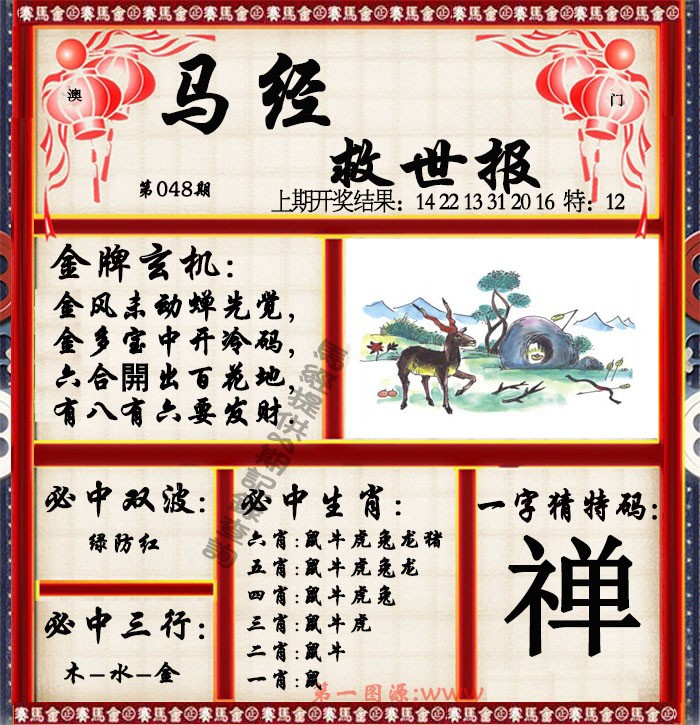 賽馬會正金馬會賽馬會正金馬會賽馬會正金馬會
澳
门
马经
救世报
第048期
上期开奖结果：14 22 13 31 20 16 特：12
金牌玄机：
金风未动蝉先觉，
金多宝中开冷码，
六合開出百花地，
有八有六要发财．
必中双波：
绿防红
必中三行：
木－水－金
必中生肖：
六肖：鼠牛虎兔龙猪
五肖：鼠牛虎兔龙
四肖：鼠牛虎兔
三肖：鼠牛虎
二肖：鼠牛
一肖：鼠
一字猜特码：
禅
第一图源:www